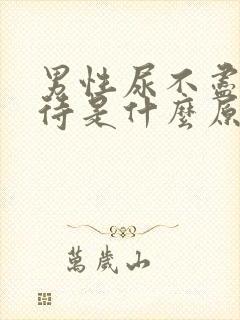 男性尿不盡
待是什麼原
萬歲山